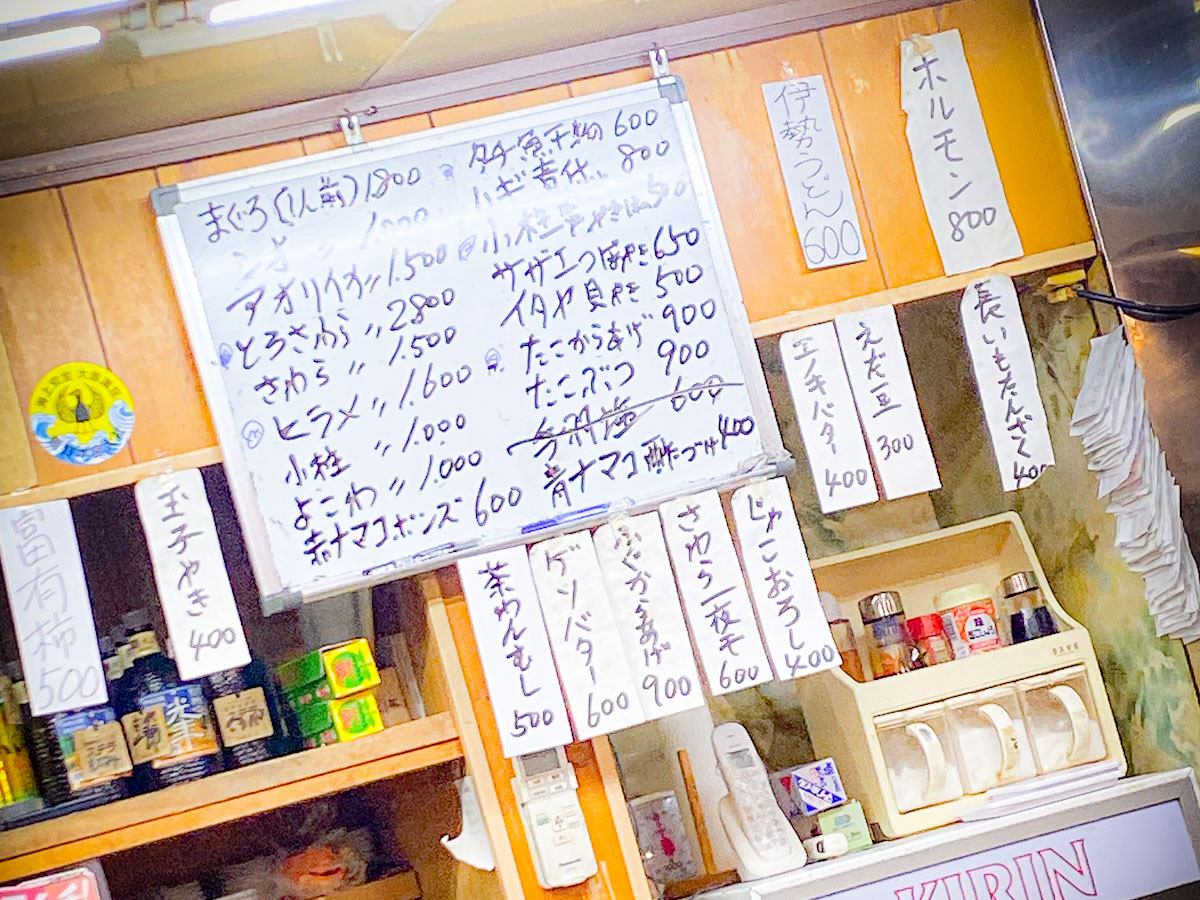 まぐろ(1人前) 1800
〃 1.000
アオリイカ 〃 1.500
とろさわら 〃 2800
さわら 〃 1.500
ヒラメ 〃 1.600
小柱 〃 1.000
よこわ 〃 1.000
赤ナマコポンズ 600
タチ魚干物 600
800
小柱 500
サザエつぼやき 650
イタヤ貝やき 500
たこからあげ 900
たこぶつ 900
600
青ナマコ酢づけ 400
伊勢うどん 600
ホルモン 800
エノキバター 400
えだ豆 300
長いもたんざく 400
富有柿 500
玉子やき 400
茶わんむし 500
ゲソバター 600
ふぐからあげ 900
さわら一夜干 600
じゃこおろし 400
SAVE
Panasonic
KIRIN